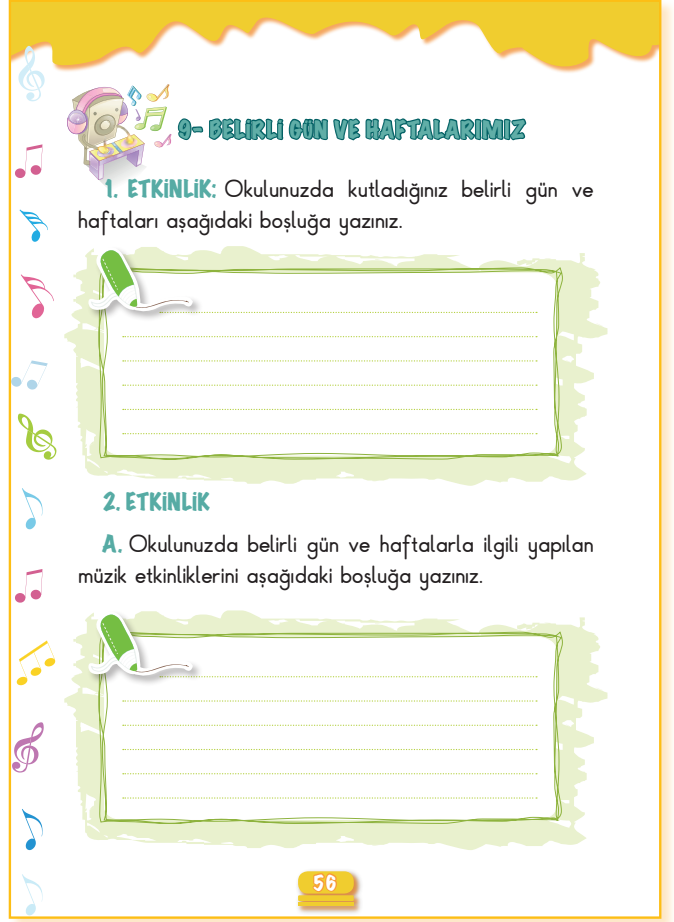 9- BELİRLİ GÜN VE HAFTALARIMIZ
1. ETKİNLİK: Okulunuzda kutladığınız belirli gün ve
haftaları aşağıdaki boşluğa yazınız.
2. ETKİNLİK
A. Okulunuzda belirli gün ve haftalarla ilgili yapılan
müzik etkinliklerini aşağıdaki boşluğa yazınız.
56